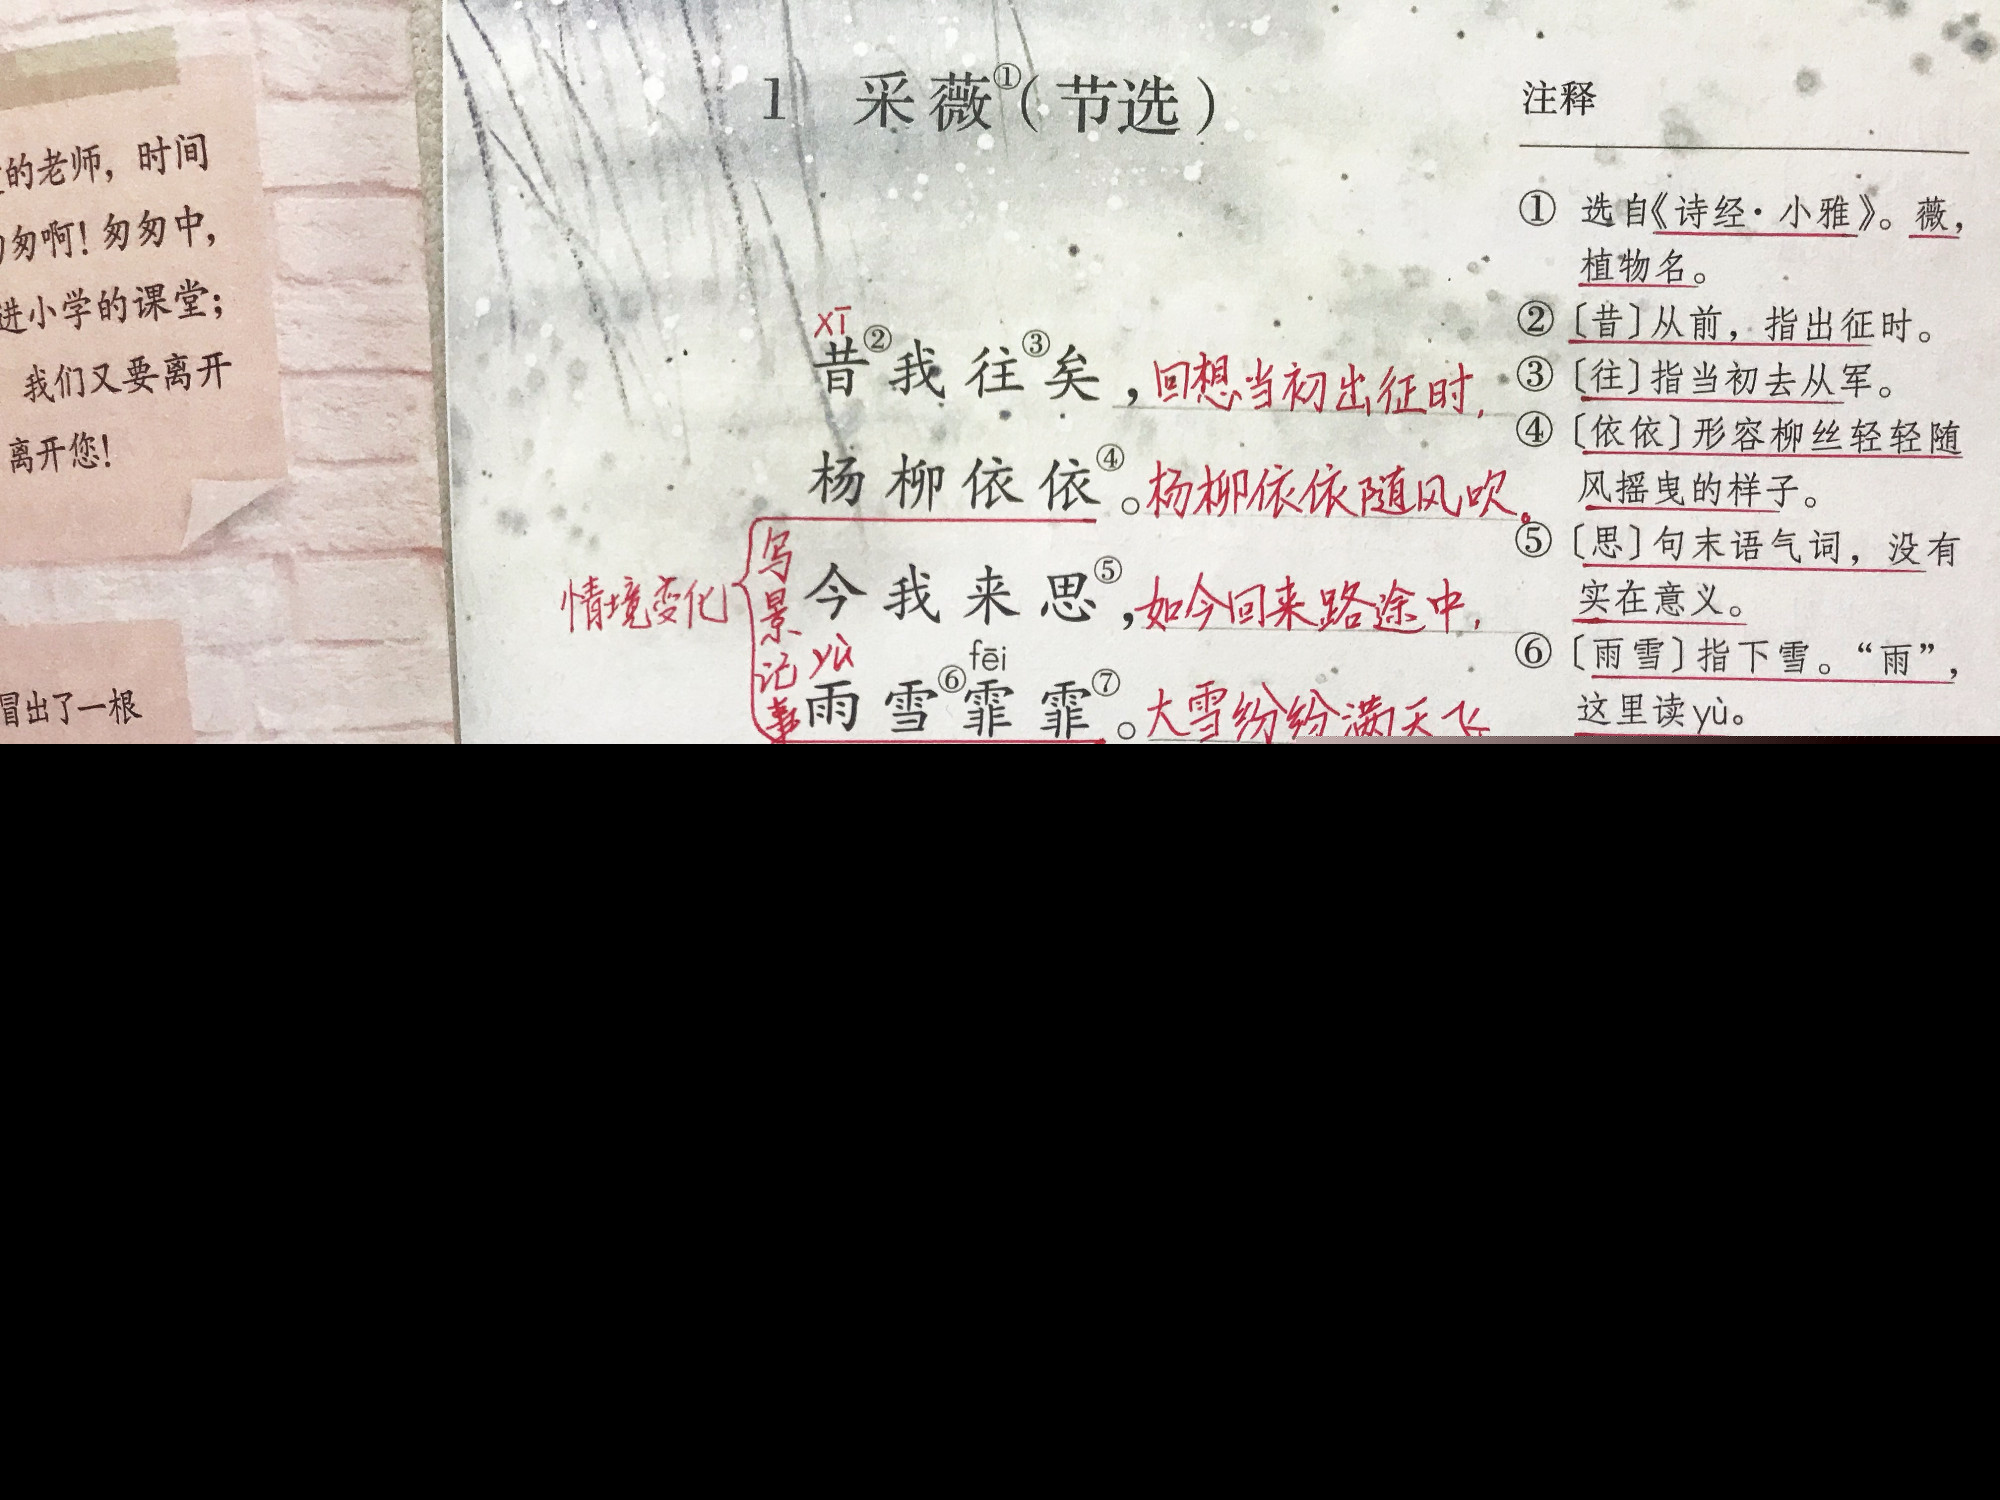 的老师，时间
匆啊！匆匆中，
进小学的课堂；
我们又要离开
离开您！
冒出了一根
1 采薇①（节选）
xī
昔②我往③矣，回想当初出征时，
杨柳依依④。杨柳依依随风吹。
情境变化
写景记事
今我来思⑤，如今回来路途中，
yù fēi
雨雪⑥霏霏⑦。大雪纷纷满天飞
注释
① 选自《诗经·小雅》。薇，
植物名。
② 〔昔〕从前，指出征时。
③ 〔往〕指当初去从军。
④ 〔依依〕形容柳丝轻轻随
风摇曳的样子。
⑤ 〔思〕句末语气词，没有
实在意义。
⑥ 〔雨雪〕指下雪。“雨”，
这里读yù。